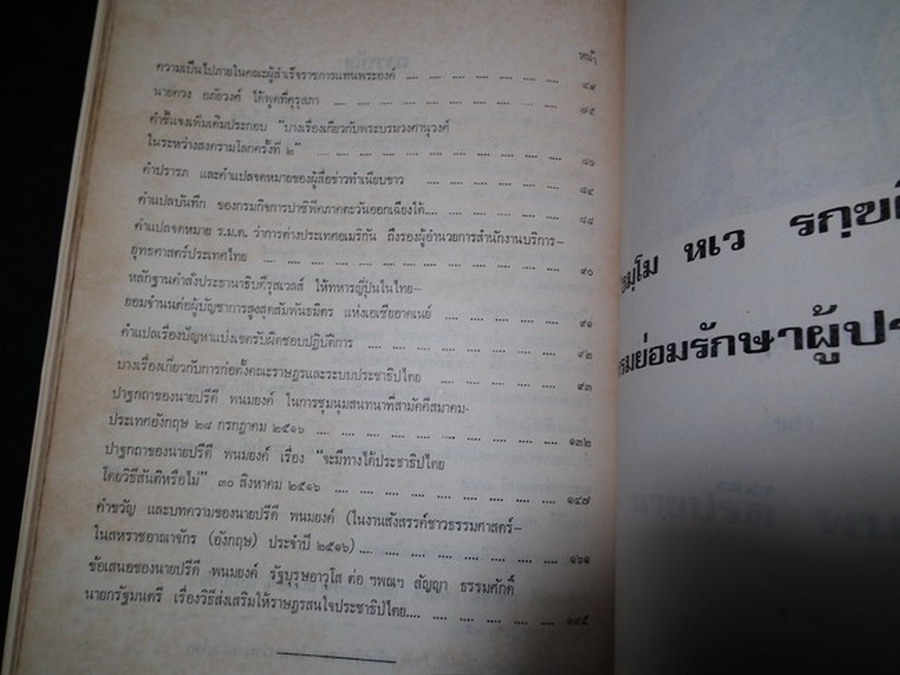 หน้า
ความเป็นไปภายในคณะผู้สำเร็จราชการแทนพระองค์ .... .... .... .... .... .... .... ๔๙
นายควง อภัยวงศ์ ได้พูดที่คุรุสภา .... .... .... .... .... .... .... .... .... ๘๕
คำชี้แจงเพิ่มเติมประกอบ "บางเรื่องเกี่ยวกับพระบรมวงศานุวงศ์
ในระหว่างสงครามโลกครั้งที่ ๒" .... .... .... .... .... .... .... .... .... ๘๐
คำปรารภ และคำแปลจดหมายของผู้สื่อข่าวทำเนียบขาว .... .... .... .... .... ๘๔
คำแปลบันทึก ของกรมกิจการปาซิฟิคภาคตะวันออกเฉียงใต้.... .... .... .... .... ๘๘
คำแปลจดหมาย ร.ม.ต. ว่าการต่างประเทศอเมริกัน ถึงรองผู้อำนวยการสำนักงานบริการ–
ยุทธศาสตร์ประเทศไทย .... .... .... .... .... .... .... .... .... .... ๙๐
หลักฐานคำสั่งประธานาธิบดีรุสเวลส์ ให้ทหารญี่ปุ่นในไทย–
ยอมจำนนต่อผู้บัญชาการสูงสุดสัมพันธมิตร แห่งเอเซียอาคเนย์ .... .... .... .... ๙๑
คำแปลเรื่องปัญหาแบ่งเขตรับผิดชอบปฏิบัติการ .... .... .... .... .... .... .... ๙๒
บางเรื่องเกี่ยวกับการก่อตั้งคณะราษฎรและระบบประชาธิปไตย .... .... .... .... ๙๓
ปาฐกถาของนายปรีดี พนมยงค์ ในการชุมนุมสนทนาที่สามัคคีสมาคม–
ประเทศอังกฤษ ๒๘ กรกฎาคม ๒๕๑๖ .... .... .... .... .... .... .... .... ๑๓๒
ปาฐกถาของนายปรีดี พนมยงค์ เรื่อง "จะมีทางได้ประชาธิปไตย
โดยวิธีสันติหรือไม่" ๓๐ สิงหาคม ๒๕๑๖ .... .... .... .... .... .... .... ๑๔๗
คำขวัญ และบทความของนายปรีดี พนมยงค์ (ในงานสังสรรค์ชาวธรรมศาสตร์–
ในสหราชอาณาจักร (อังกฤษ) ประจำปี ๒๕๑๖) .... .... .... .... .... .... .... ๑๖๑
ข้อเสนอของนายปรีดี พนมยงค์ รัฐบุรุษอาวุโส ต่อ ฯพณฯ สัญญา ธรรมศักดิ์
นายกรัฐมนตรี เรื่องวิธีส่งเสริมให้ราษฎรสนใจประชาธิปไตย.... .... .... .... ๑๙๕
หเว
ย่อมรักษาผู้